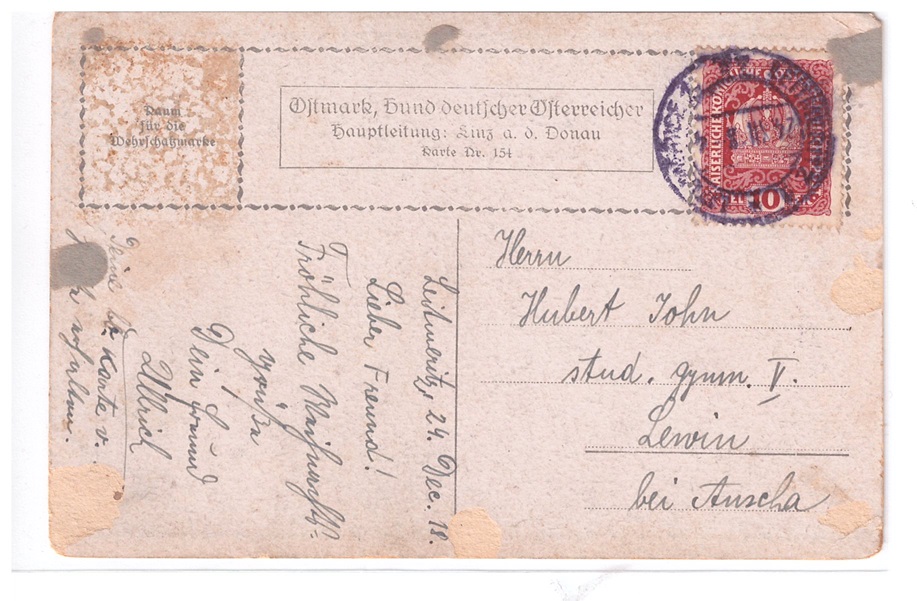 Raum
für die
Wehrschatzmarke
Ostmark, Bund deutscher Österreicher
Hauptleitung: Linz a. d. Donau
Karte Nr. 154
KAISERLICHE KÖNIGLICHE
10
Leitmeritz, 24. Dec. 18.
Lieber Freund!
Fröhliche Weihnachts-
grüße
Dein Freund
Ullrich
Deine lb. Karte v.
erhalten.
Herrn
Hubert John
stud. gymn. V.
Lewin
bei Auscha